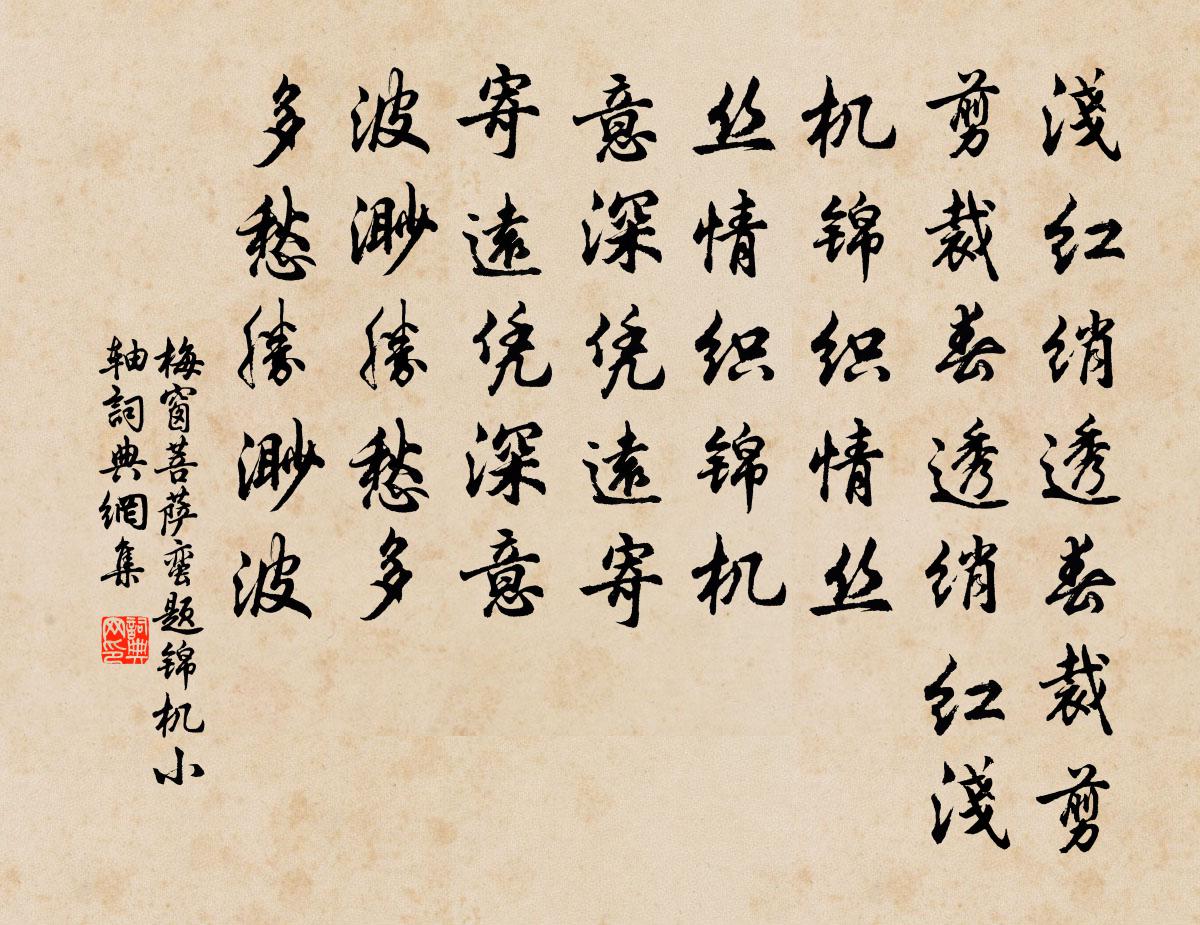 淺红绡透春裁剪
剪裁春透绡红淺
机锦织情丝
丝情织锦机
意深凭遠寄
寄遠凭深意
波渺勝愁多
多愁勝渺波
梅窗菩萨蛮题锦机小
轴詞典網集
詞典网印